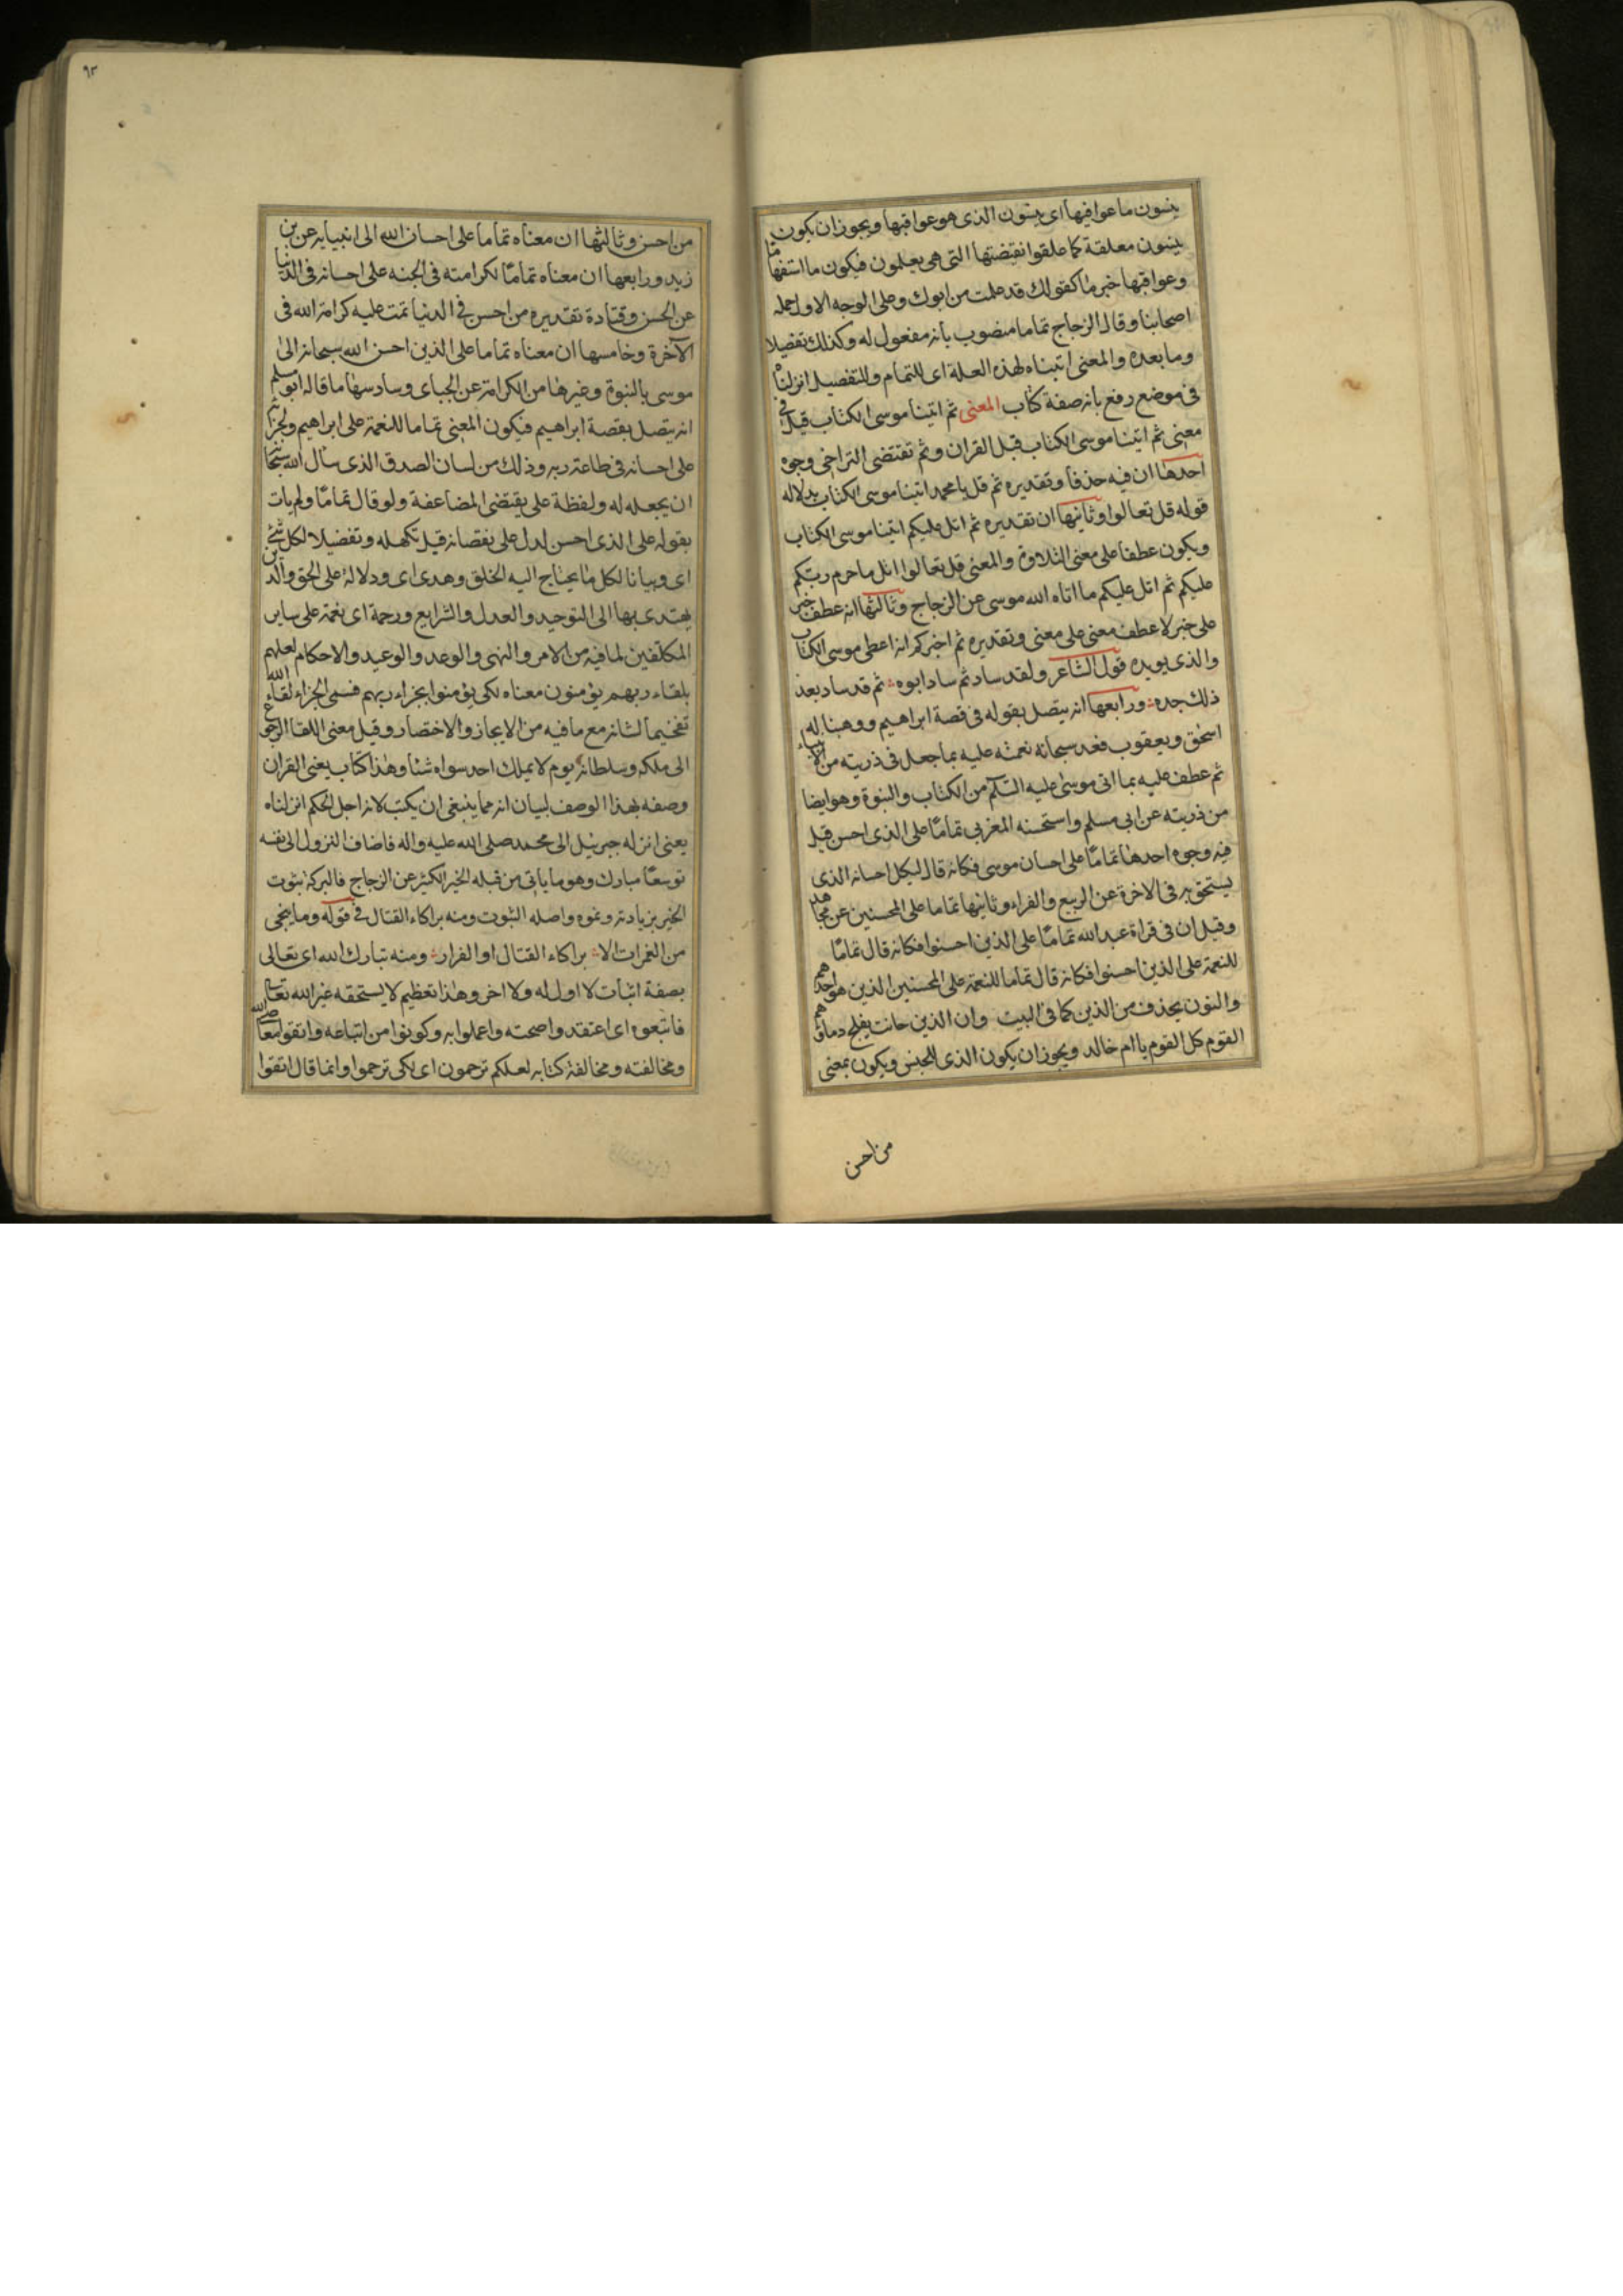 ينسون ما عواقبها اى ينسون الذى هو عواقبها ويجوز ان يكون
ينسون معلقة كما علقوا نقيضتها التى هى يعلمون فيكون ما استفهاما
وعواقبها خبر ما كقولك قد علمت من ابوك وعلى الوجه الاول حمله
اصحابنا وقال الزجاج تماما منصوب بانه مفعول له وكذلك تفصيلا
وما بعده والمعنى اتيناه لهذه العلة اى للتمام وللتفصيل انزلناه
فى موضع رفع بانه صفة كتاب المعنى ثم اتينا موسى الكتاب قيل فى
معنى ثم اتينا موسى الكتاب قبل القران وثم تقتضى التراخى وجوه
احدها ان فيه حذفا وتقديره ثم قل يا محمد اتينا موسى الكتاب بدلاله
قوله قل تعالوا وثانيها ان تقديره ثم اتل عليكم اتينا موسى الكتاب
ويكون عطفا على معنى التلاوة والمعنى قل تعالوا اتل ما حرم ربكم
عليكم ثم اتل عليكم ما اتاه الله موسى عن الزجاج وثالثها انه عطف خبر
على خبر لا عطف معنى على معنى وتقديره ثم اخبركم انه اعطى موسى الكتاب
والذى يويده قول الشاعر ولقد ساد ثم ساد ابوه ثم قد ساد بعد
ذلك جده ورابعها انه يتصل بقوله فى قصة ابراهيم ووهبنا له
اسحق ويعقوب فعد سبحانه نعمته عليه بما جعل فى ذريته من الانبياء
ثم عطف عليه بما اتى موسى عليه السلام من الكتاب والنبوة وهو ايضا
من ذريته عن ابى مسلم واستحسنه المغربى تماما على الذى احسن قيل
فيه وجوه احدها تماما على احسان موسى فكانه قال ليكمل احسانه الذى
يستحق به فى الاخرة عن الربيع والفراء وثانيها تماما على المحسنين عن مجاهد
وقيل ان فى قراة عبد الله تماما على الذين احسنوا فكانه قال تماما
للنعمة على الذين احسنوا فكانه قال تماما للنعمة على المحسنين الذين هو احدهم
والنون يحذف من الذين كما فى البيت وان الذين حانت بفلج دماؤهم
القوم كل القوم يا ام خالد ويجوز ان يكون الذى للجنس ويكون بمعنى
من احسن
٩٣
من احسن وثالثها ان معناه تماما على احسان الله الى انبيايه عن بن
زيد ورابعها ان معناه تماما لكرامته فى الجنه على احسانه فى الدنيا
عن الحسن وقتادة تقديره من احسن فى الدنيا تمت عليه كرامة الله فى
الآخرة وخامسها ان معناه تماما على الذين احسن الله سبحانه الى
موسى بالنبوة وغيرها من الكرامة عن الجباى وسادسها ما قاله ابو مسلم
انه يتصل بقصة ابراهيم فيكون المعنى تماما للنعمة على ابراهيم ولجزائه
على احسانه فى طاعة ربه وذلك من لسان الصدق الذى سال الله سبحانه
ان يجعله له ولفظة على يقتضى المضاعفة ولو قال تماما ولم يات
بقوله على الذى احسن لدل على نقصانه قبل تكمله وتفضيلا لكل شئ
اى وبيانا لكل ما يحتاج اليه الخلق وهدى اى ودلالة على الحق والدين
يهتدى بها الى التوحيد والعدل والشرايع ورحمة اى نعمة على ساير
المكلفين لما فيه من الامر والنهى والوعد والوعيد والاحكام لعلهم
بلقاء ربهم يؤمنون معناه لكى يؤمنوا بجزاء ربهم فسمى الجزاء لقاء الله
تفخيما لشانه مع ما فيه من الايجاز والاختصار وقيل معنى اللقا الرجوع
الى ملكه وسلطانه يوم لا يملك احد سواه شئا وهذا كتاب يعنى القران
وصفه بهذا الوصف لبيان انه مما ينبغى ان يكتب لانه اجل الحكم انزلناه
يعنى انزله جبرئيل الى محمد صلى الله عليه واله فاضاف النزول الى نفسه
توسعا مبارك وهو ما ياتى من قبله الخير الكثير عن الزجاج فالبركة ثبوت
الخير بزيادته ونموه واصله الثبوت ومنه براكاء القتال فى قوله وما ينجى
من الغمرات الا براكاء القتال او الفرار ومنه تبارك الله اى تعالى
بصفة اثبات لا اول له ولا اخر وهذا تعظيم لا يستحقه غير الله تعالى
فاتبعوه اى اعتقدوا صحته واعملوا به وكونوا من اتباعه واتقوا معاصى الله
ومخالفته ومخالفة كتابه لعلكم ترحمون اى لكى ترحموا وانما قال اتقوا